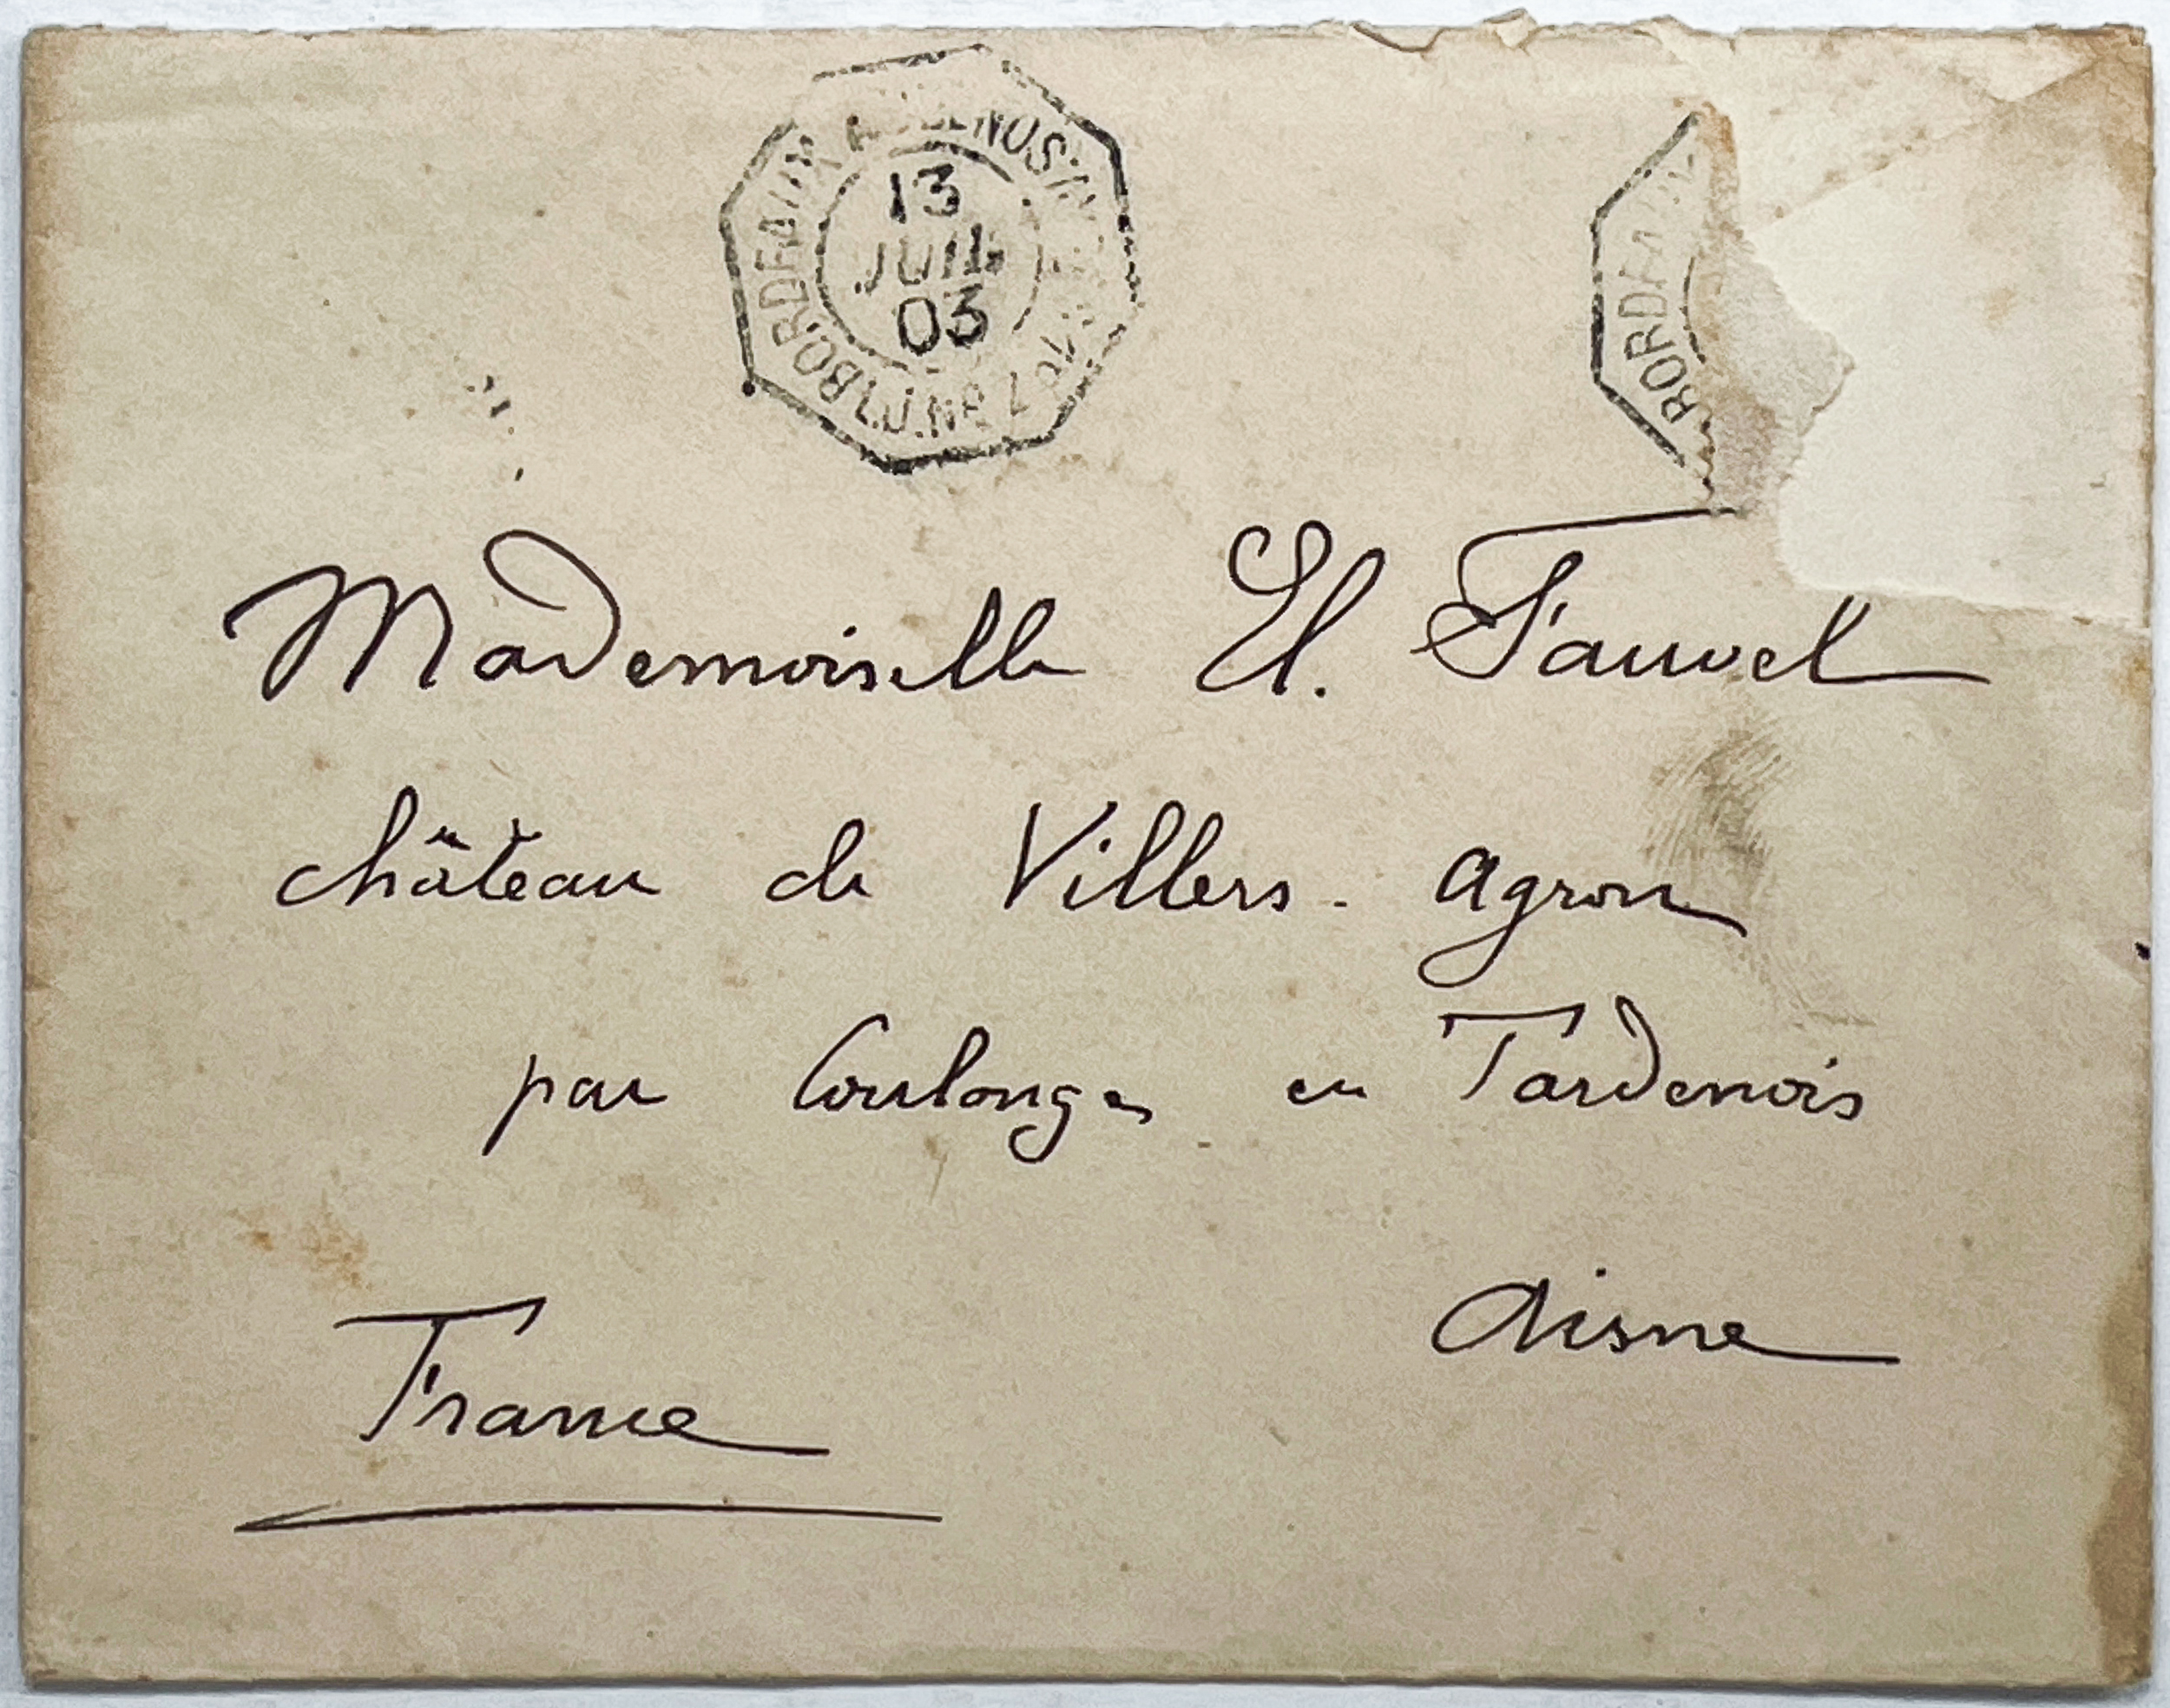 BORDEAUX
13
JUIL
03
BORDEAUX
Mademoiselle El. Fauvel
château de Villers-Agron
par Coulonges en Tardenois
Aisne
France